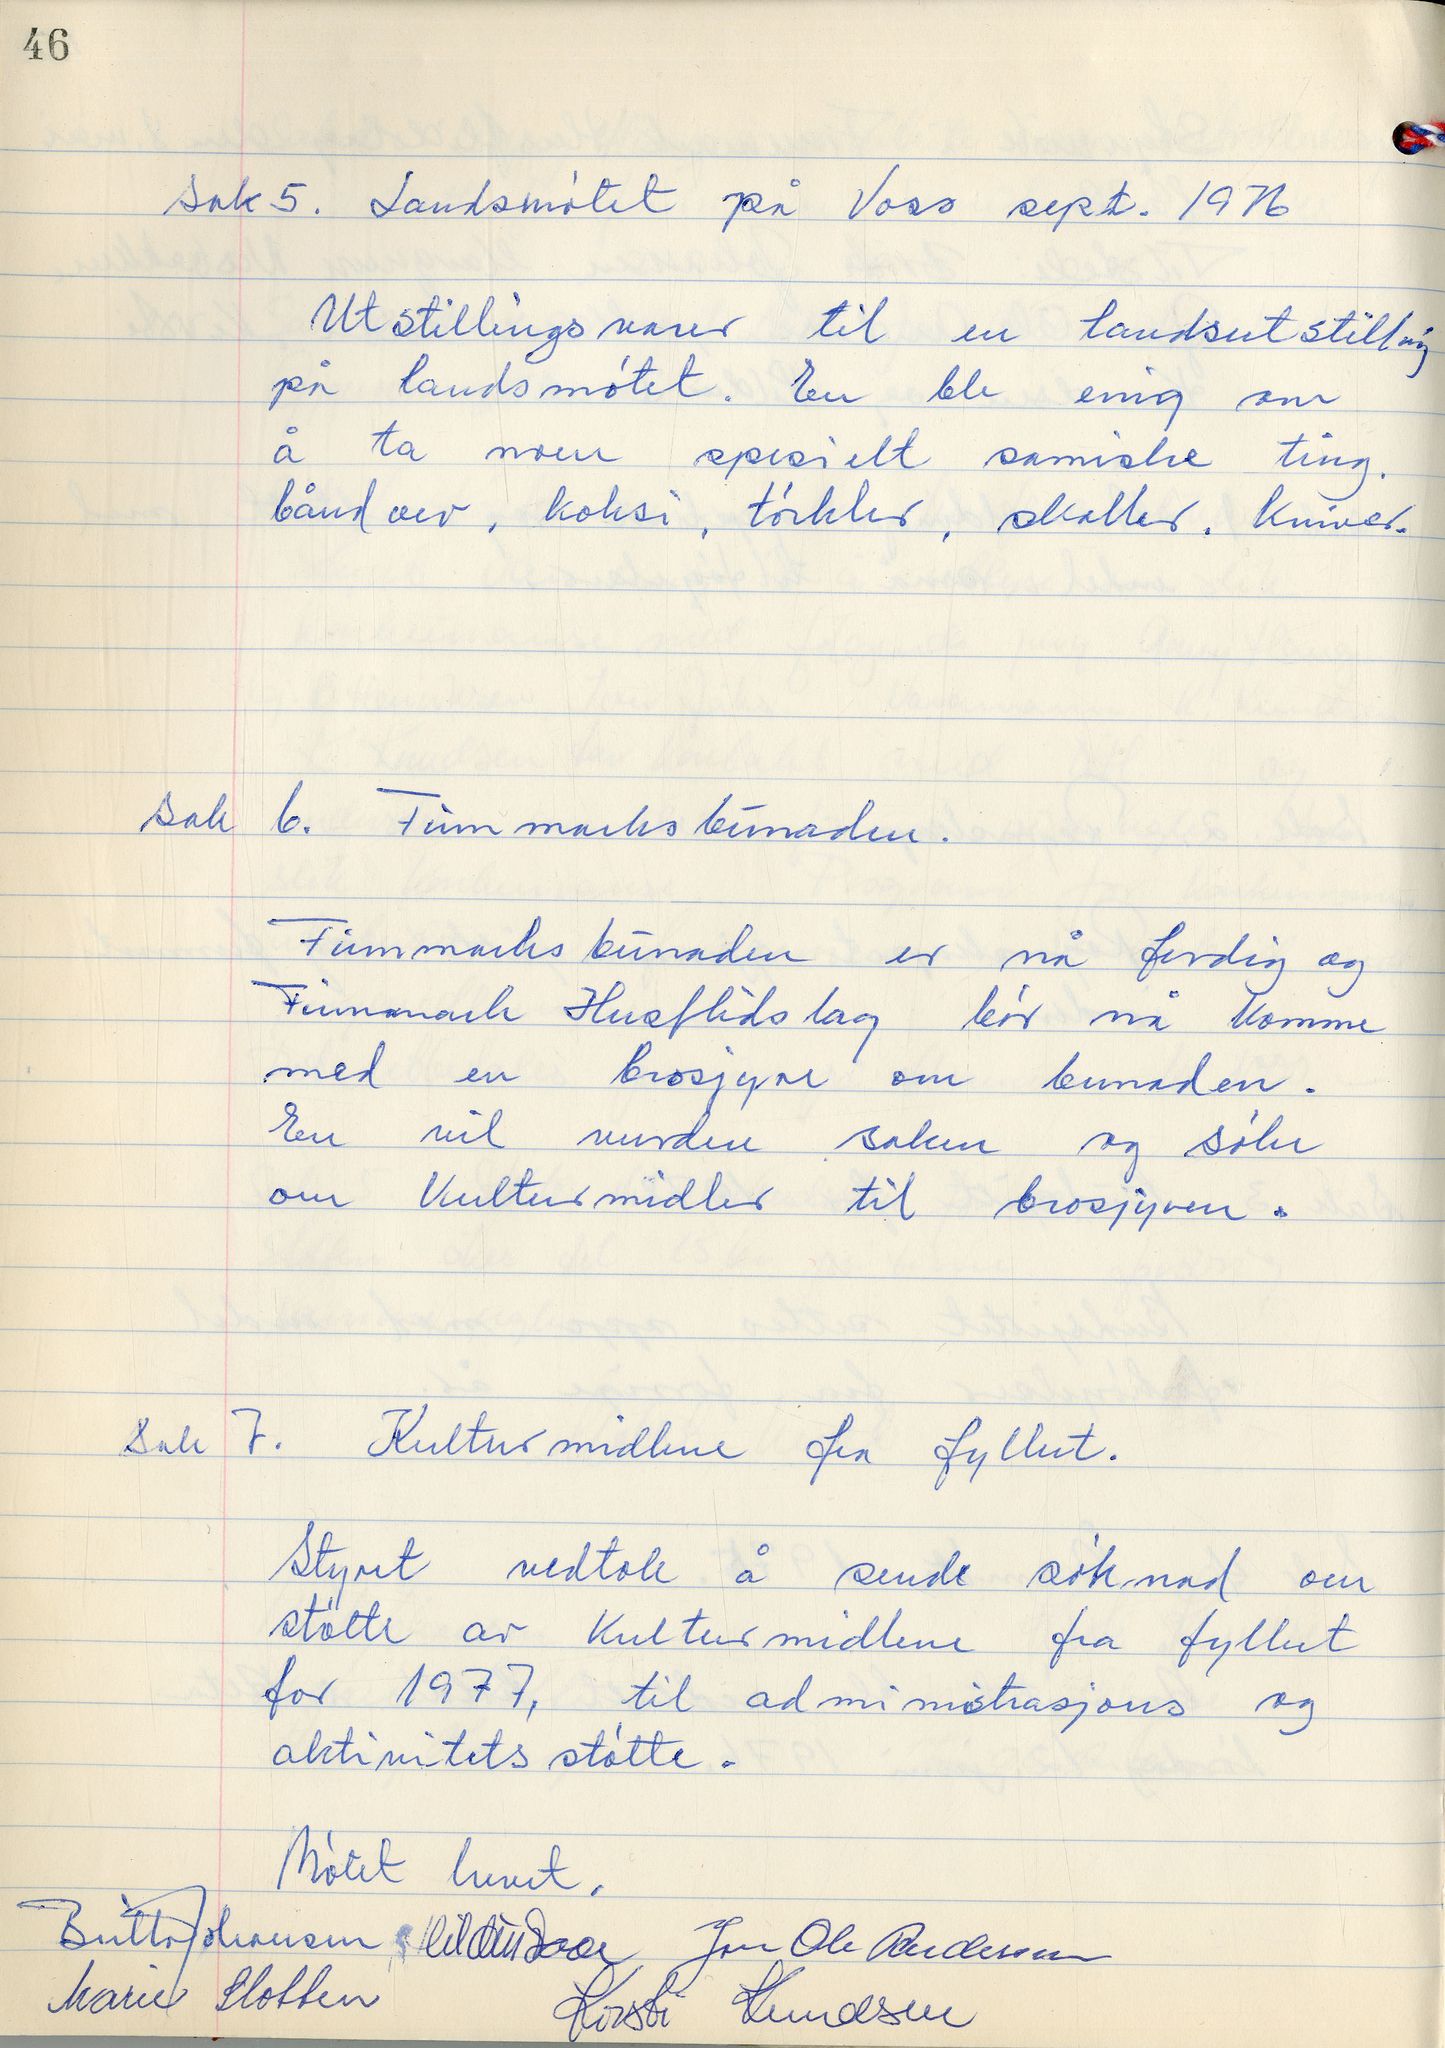 46
Sak 5. Landsmøtet på Voss sept. 1976
Utstillingsvarer til en landsutstilling
på landsmøtet. En ble enig om
å ta noen spesielt samiske ting.
båndvev, koksi, tørkler, skaller. Kniver.
Sak 6. Finnmarksbunaden.
Finnmarksbunaden er nå ferdig og
Finnmark Husflidslag bør nå komme
med en brosjyre om bunaden.
En vil vurdere saken og søke
om Kulturmidler til brosjyren.
Sak 7. Kulturmidlene fra fylket.
Styret vedtok å sende søknad om
støtte av Kulturmidlene fra fylket
for 1977, til administrasjons og
aktivitetsstøtte.
Møtet hevet.
Britta Johansen Jon Ole Andersen
Marie Slotten Kirsti Knudsen